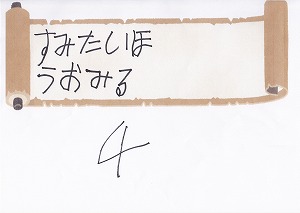 すみたいほ
うおみる
4